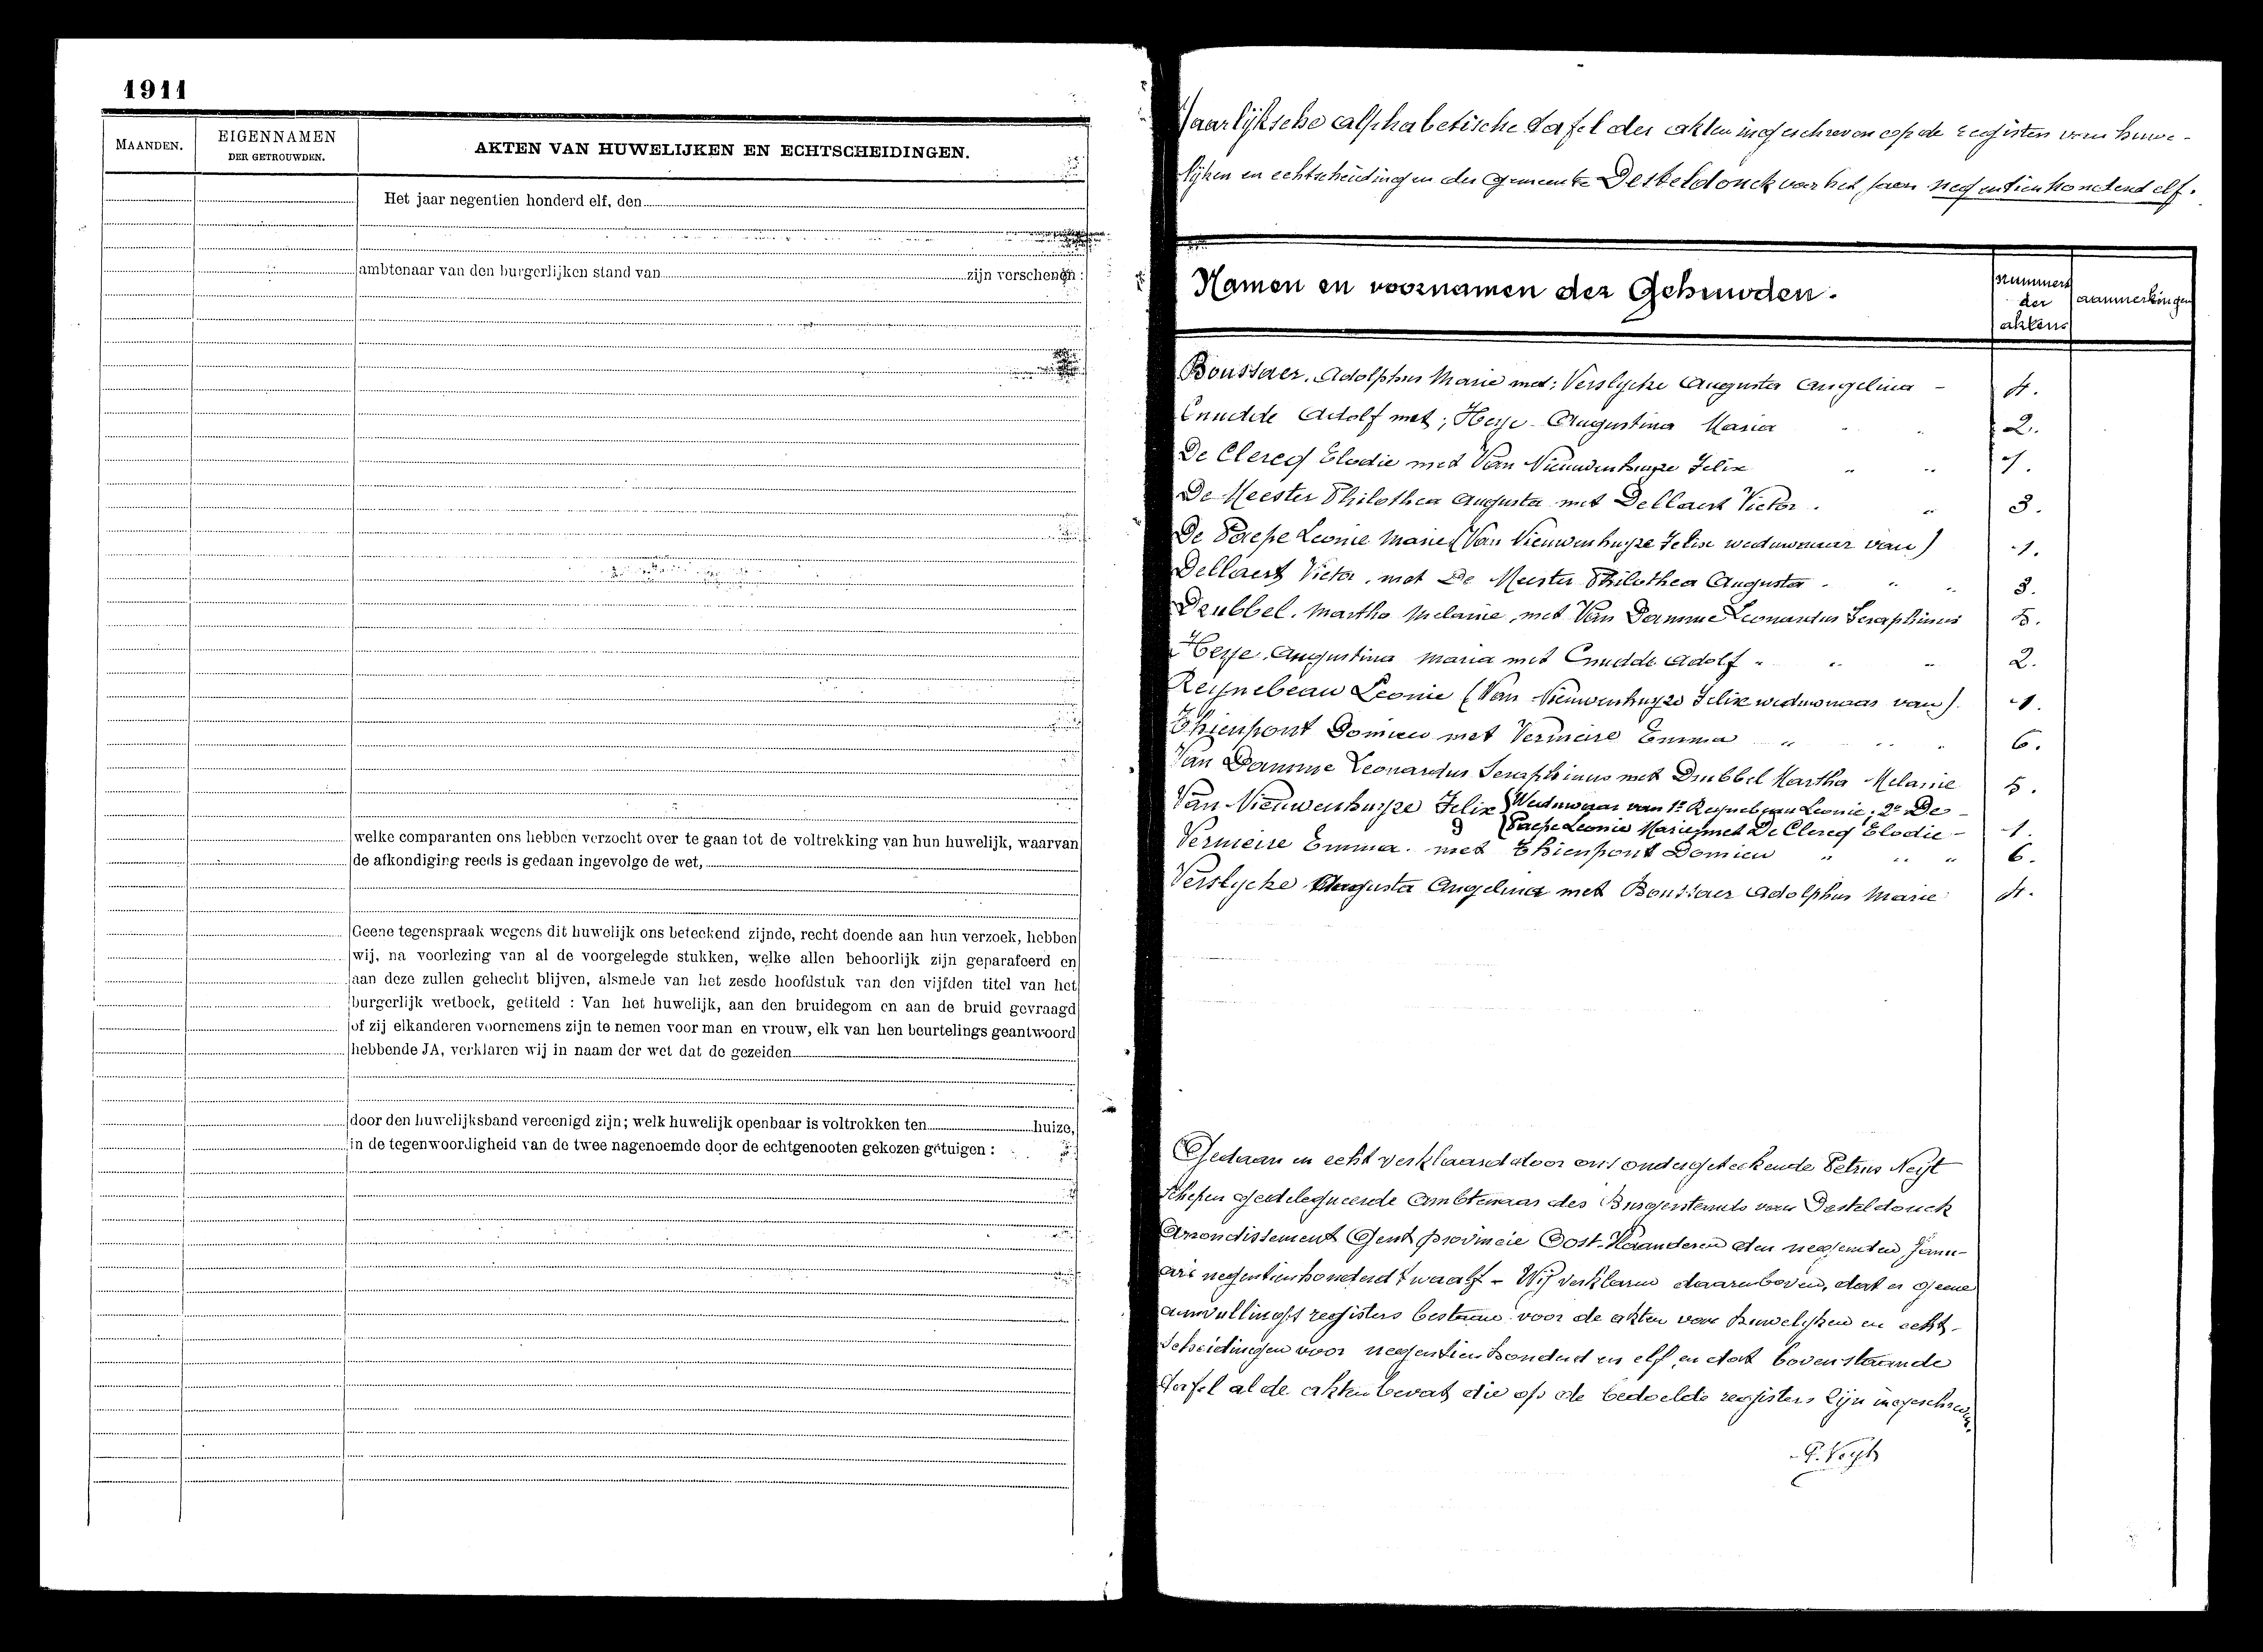 1911
MAANDEN.
EIGENNAMEN
DER GETROUWDEN.
AKTEN VAN HUWELIJKEN EN ECHTSCHEIDINGEN.
Het jaar negentien honderd elf, den
ambtenaar van den burgerlijken stand van zijn verschenen :
welke comparanten ons hebben verzocht over te gaan tot de voltrekking van hun huwelijk, waarvan
de afkondiging reeds is gedaan ingevolge de wet,
Geene tegenspraak wegens dit huwelijk ons beteekend zijnde, recht doende aan hun verzoek, hebben
wij, na voorlezing van al de voorgelegde stukken, welke allen behoorlijk zijn geparafeerd en
aan deze zullen gehecht blijven, alsmede van het zesde hoofdstuk van den vijfden titel van het
burgerlijk wetboek, getiteld : Van het huwelijk, aan den bruidegom en aan de bruid gevraagd
of zij elkanderen voornemens zijn te nemen voor man en vrouw, elk van hen beurtelings geantwoord
hebbende JA, verklaren wij in naam der wet dat de gezeiden
door den huwelijksband vereenigd zijn; welk huwelijk openbaar is voltrokken ten huize,
in de tegenwoordigheid van de twee nagenoemde door de echtgenooten gekozen getuigen :
Jaarlijksche alphabetische tafel der akten ingeschreven op de registers van huwe-
lijken en echtscheidingen der gemeente Desteldonck voor het jaar negentienhonderd elf.
Namen en voornamen der Gehuwden.
nummers
der
aktens
aanmerkingen
Boussaer, Adolphus Marie met: Verslycke Augusta Angelina - 4.
Cnudde Adolf met; Heye Augustina Maria 2.
De Clercq Elodie met Van Nieuwenhuyze Felix 1.
De Meester Philothea Augusta met Dellaert Victor. 3.
De Paepe Leonie Marie (Van Nieuwenhuyze Felix weduwnaar van) 1.
Dellaert Victor, met De Meester Philothea Augusta. 3.
Drubbel, Martha Melanie, met Van Damme Leonardus Seraphinus 5.
Heye, Augustina Maria met Cnudde Adolf 2.
Reynebeau Leonie (Van Nieuwenhuyze Felix weduwnaar van). 1.
Thienpont Domien met Vermeire Emma 6.
Van Damme Leonardus Seraphinus met Drubbel Martha Melanie 5.
Van Nieuwenhuyze Felix (Weduwnaar van 1e Reynebeau Leonie; 2e De-
Paepe Leonie Marie) met De Clercq Elodie - 1.
Vermeire Emma. met Thienpont Domien 6.
Verslycke Augusta Angelina met Boussaer Adolphus Marie 4.
Gedaan en echt verklaard door ons ondergeteekende Petrus Neyt
Schepen gedelegueerde Ambtenaar des Burgerstands van Desteldonck
Arrondissement Gent provincie Oost-Vlaanderen den negenden Janu-
ari negentienhonderd twaalf - Wij verklaren daarenboven, dat er geene
aanvullingsregisters bestaan voor de akten van huwelijken en echt-
scheidingen voor negentienhonderd en elf, en dat bovenstaande
tafel al de akten bevat die op de bedoelde registers zijn ingeschreven.
P. Neyt